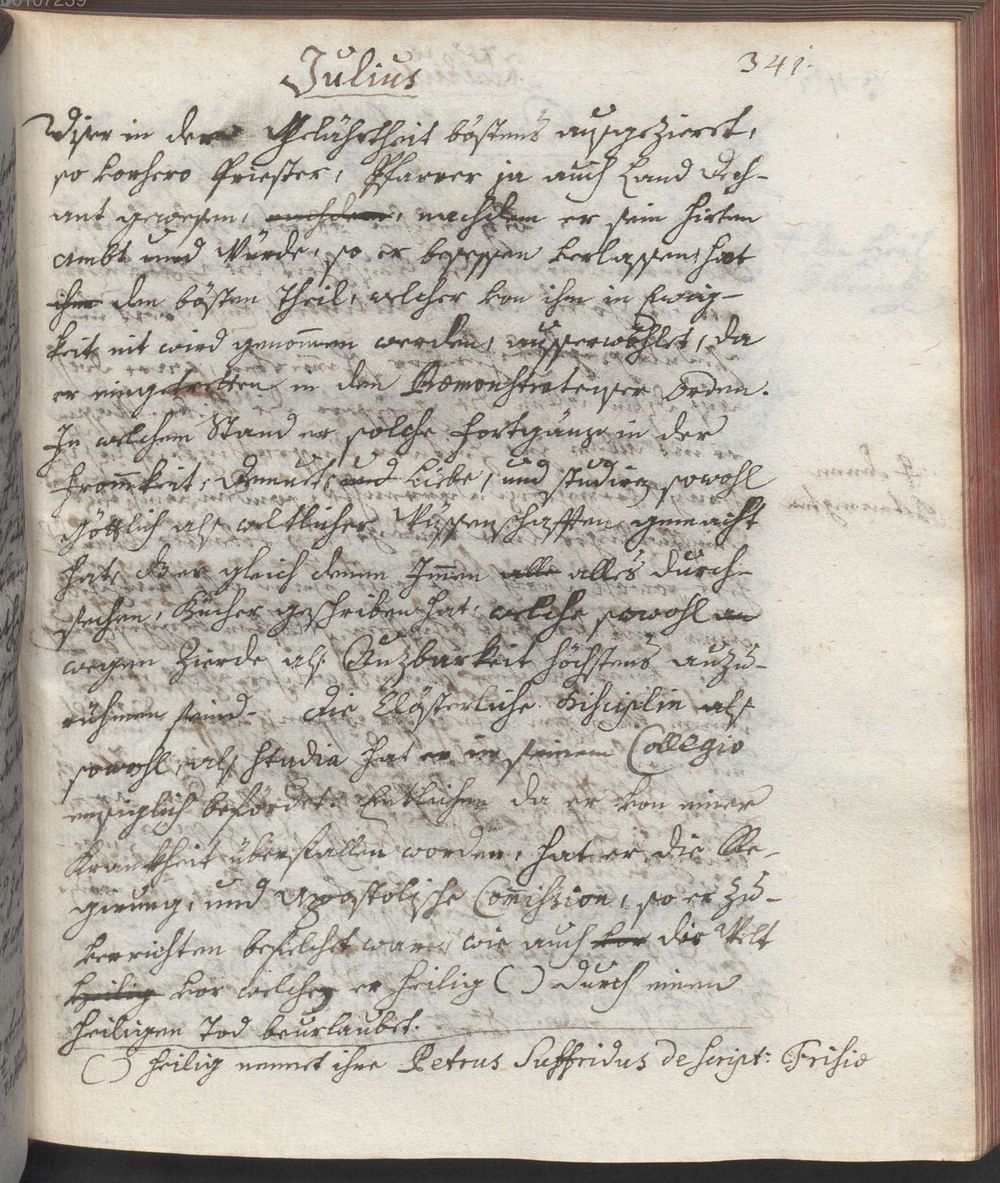 Julius
341.
Diser in der Gelährtheit böstens aussgezieret,
so vorhero Priester, Pfarrer ja auch Land Dech-
ant gewesen, nachdem, nachdem er sein Hirten
ambt und Würde, so er besessen verlassen, hat
ihm den bösten Theil, welcher von ihm in Ewig-
keit nit wird genommen werden, ausserwöhlet, da
er eingetretten in den Præmonstratenser Orden.
In welchem Stand er solche fortgäng in der
Frommkeit, Demuet, und Liebe, und studieren sowohl
göttlich als weltlicher Wüssenschafften gemacht
hat, er gleich denen Immen alle alles durch-
Bücher geschriben hat, welche sowohl an
wegen Zierde, als Nuzbarkeit höchstens anzu-
rühmen seind. Die Clösterliche Disciplin als
sowohl, als Studia hat er in seinem Collegio
embsiglich befördet. Entlichen da er von einer
Kranckheit überfallen worden, hat er die Re-
gierung, und Apostolische Commission, so er zu-
verrichten befelchet ware, wie auch vor der Welt
heilig vor welcher er heilig ( ) durch einen
heiligen Tod beurlaubet.
( ) heilig nennet ihne Petrus Suffridus de script: Frisiæ